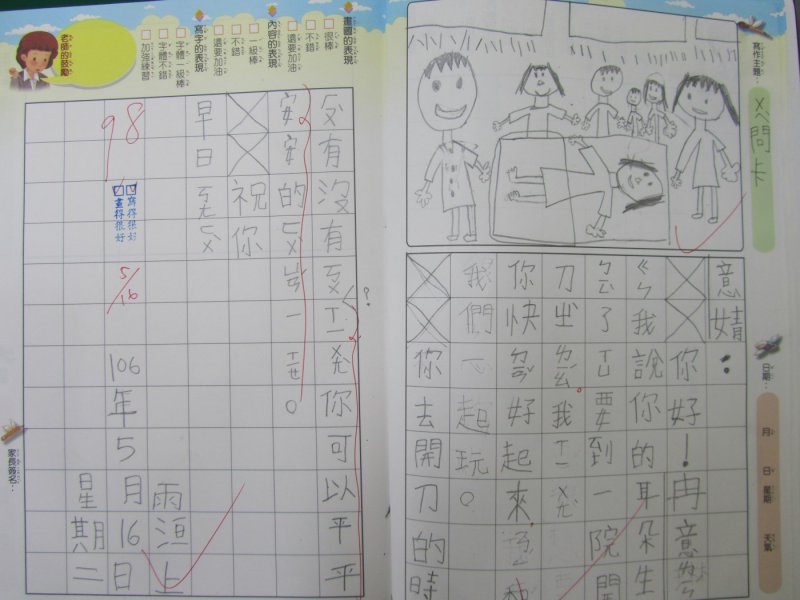 寫作主題：
問卡
日期： 月 日 星期 天氣
意婧：
你好！再意
ㄍㄣ我說你的耳朵生
了ㄒㄩ要到一院開
刀出 我ㄒㄧㄨㄤ
你快 好起來
我們一起玩。
你去開刀的時
有沒有 ㄒㄧㄤ你可以平平
安安的 一ㄒㄧㄝ。
祝你
早日ㄎㄤㄈㄨ
雨洹上
106年5月16日
星期二
98
寫得很好
畫得很好
5/16
?
畫圖的表現
很棒
不錯
還要加油
內容的表現
一級棒
不錯
還要加油
寫字的表現
字體一級棒
字體不錯
加強練習
老師的鼓勵
家長簽名：